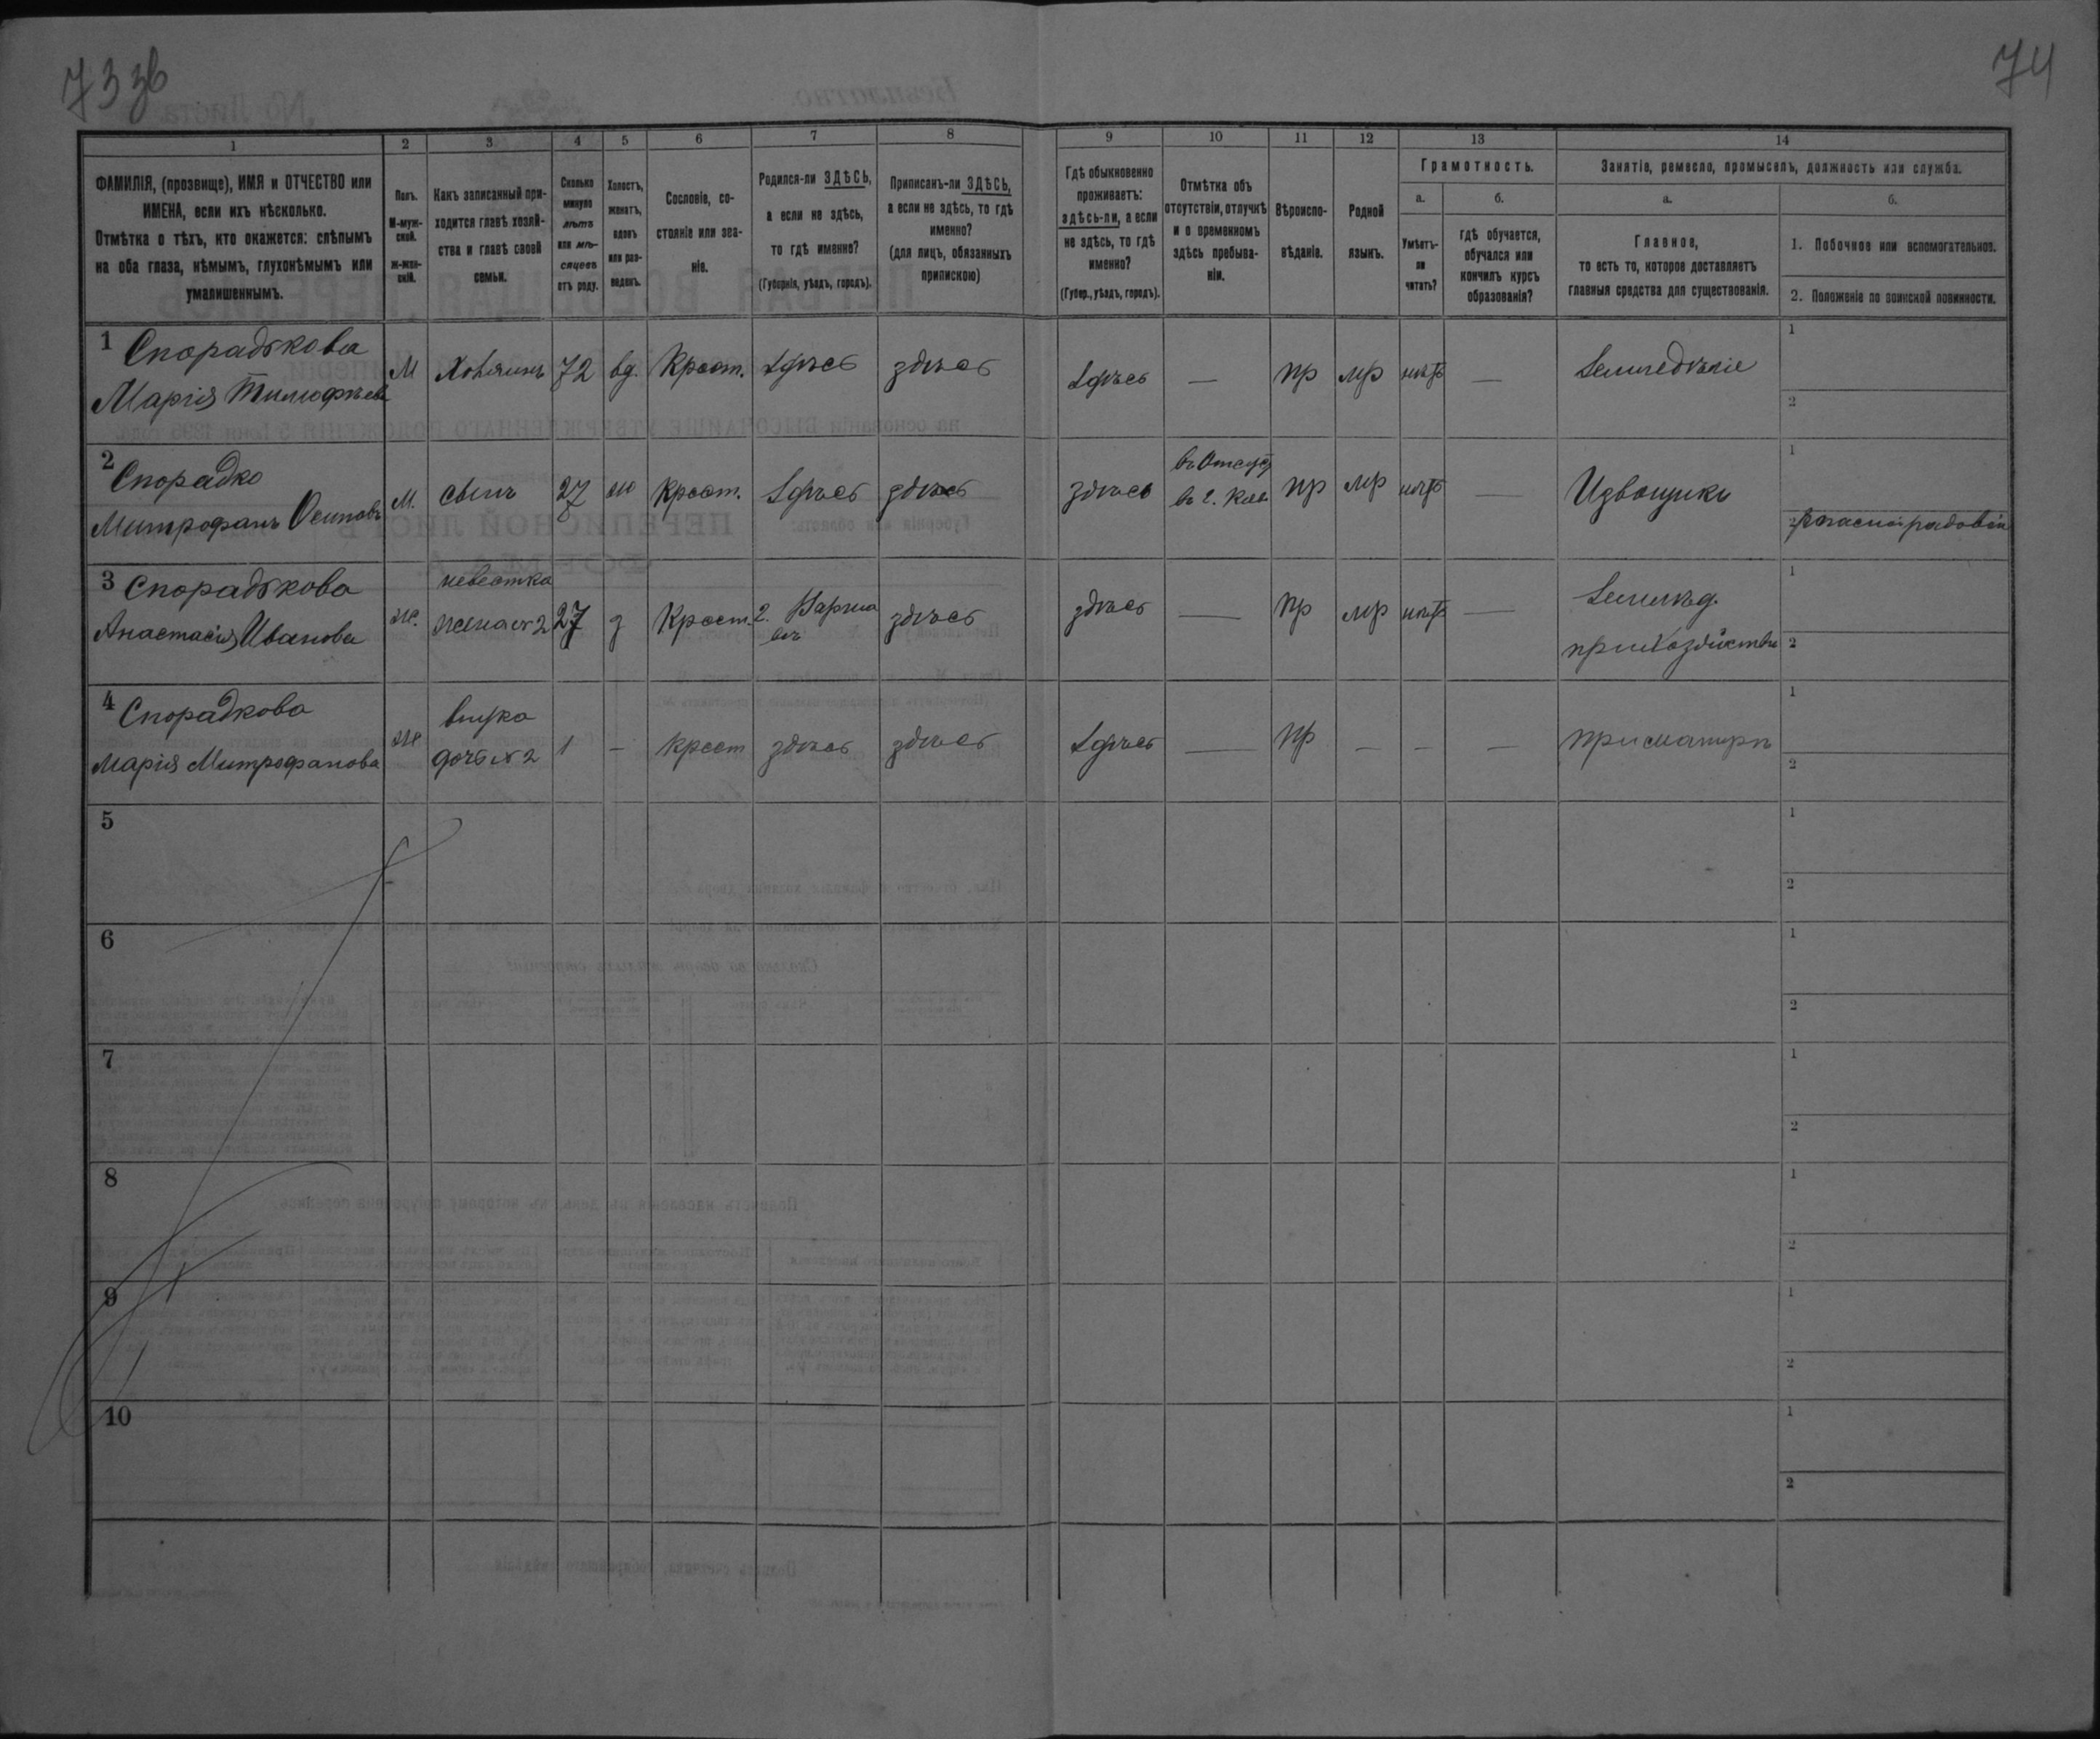 73 зв
74
1
2
3
4
5
6
7
8
9
10
11
12
13
14
ФАМИЛІЯ, (прозвище), ИМЯ и ОТЧЕСТВО или
ИМЕНА, если ихъ нѣсколько.
Отмѣтка о тѣхъ, кто окажется: слѣпымъ
на оба глаза, нѣмымъ, глухонѣмымъ или
умалишеннымъ.
Полъ.
М-муж-
ской.
Ж-жен-
скій.
Какъ записанный при-
ходится главѣ хозяй-
ства и главѣ своей
семьи.
Сколько
минуло
лѣтъ
или мѣ-
сяцевъ
отъ роду.
Холостъ,
женатъ,
вдовъ
или раз-
веденъ.
Сословіе, со-
стояніе или зва-
ніе.
Родился-ли ЗДѢСЬ,
а если не здѣсь,
то гдѣ именно?
(Губернія, уѣздъ, городъ).
Приписанъ-ли ЗДѢСЬ,
а если не здѣсь, то гдѣ
именно?
(для лицъ, обязанныхъ
припискою)
Гдѣ обыкновенно
проживаетъ:
здѣсь-ли, а если
не здѣсь, то гдѣ
именно?
(Губер., уѣздъ, городъ).
Отмѣтка объ
отсутствіи, отлучкѣ
и о временномъ
здѣсь пребыва-
ніи.
Вѣроиспо-
вѣданіе.
Родной
языкъ.
Грамотность.
а.
Умѣетъ-
ли
читать?
б.
гдѣ обучается,
обучался или
кончилъ курсъ
образованія?
Занятіе, ремесло, промыселъ, должность или служба.
а.
Главное,
то есть то, которое доставляетъ
главныя средства для существованія.
б.
1. Побочное или вспомогательное.
2. Положеніе по воинской повинности.
1 Спорадькова
Марія Тимофѣева
М
Хозяинъ
72
вд.
Крест.
Здѣсь
здѣсь
Здѣсь
—
пр
мр
нѣтъ
—
Земледѣліе
1
2
2 Спорадко
Митрофанъ Осиповъ
М.
сынъ
27
Крест.
Здѣсь
здѣсь
здѣсь
пр
мр
нѣтъ
—
Извощики
1
2
3 Спорадькова
Анастасія Иванова
ж.
невестка
жена № 2
27
з
Крест.
здѣсь
здѣсь
—
пр
мр
нѣтъ
—
Земледѣ.
при хозяйстви
1
2
4 Спорадкова
Марія Митрофанова
ж
внука
дочь № 2
1
–
Крест
здѣсь
здѣсь
Здѣсь
—
пр
–
–
—
при матерѣ
1
2
5
1
2
6
1
2
7
1
2
8
1
2
9
1
2
10
1
2